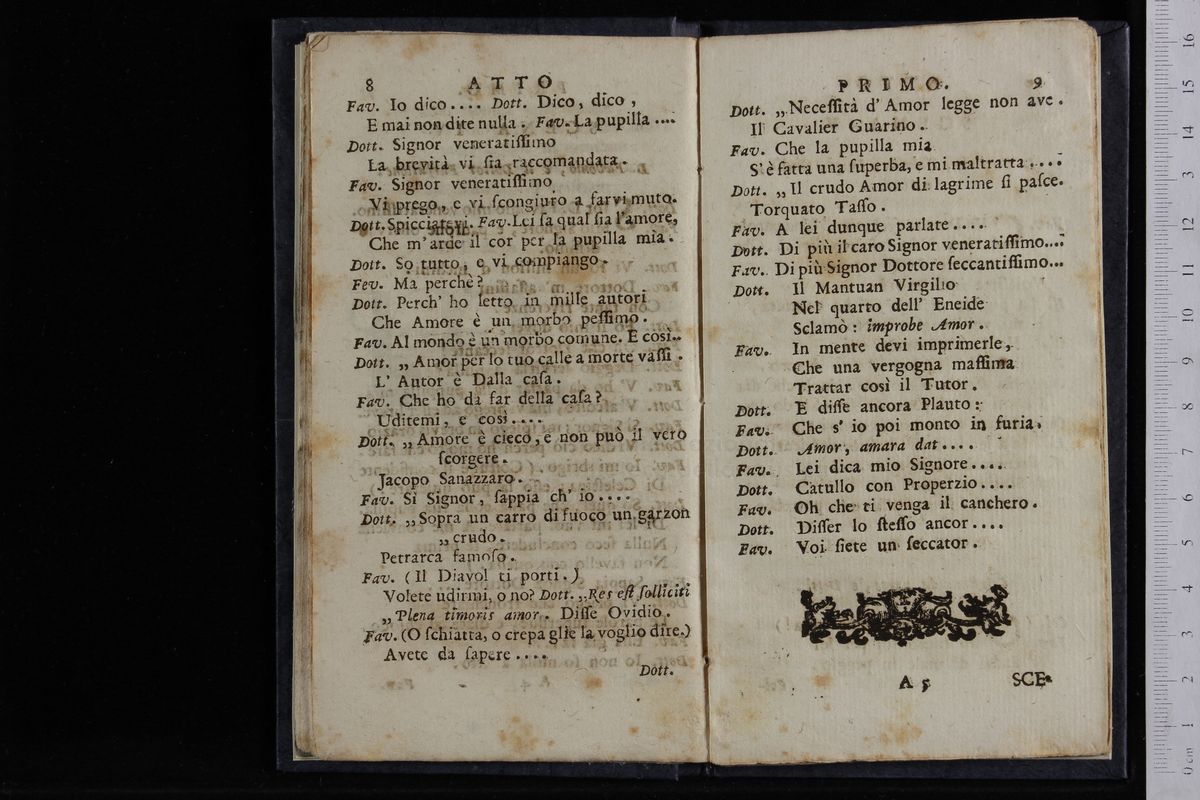 8 ATTO
Fav. Io dico.... Dott. Dico, dico,
E mai non dite nulla. Fav. La pupilla ....
Dott. Signor veneratiſſimo
La brevità vi ſia raccomandata.
Fav. Signor veneratiſſimo
Vi prego, e vi ſcongiuro a farvi muto.
Dott. Spicciatevi. Fav. Lei ſa qual ſia l'amore,
Che m'arde il cor per la pupilla mia.
Dott. So tutto, e vi compiango.
Fev. Ma perchè?
Dott. Perch' ho letto in mille autori
Che Amore è un morbo peſſimo.
Fav. Al mondo è un morbo comune. E così..
Dott. „ Amor per lo tuo calle a morte vaſſi.
L' Autor è Dalla caſa.
Fav. Che ho da far della caſa?
Uditemi, e così....
Dott. „ Amore è cieco, e non può il vero
ſcorgere.
Jacopo Sanazzaro.
Fav. Sì Signor, ſappia ch' io....
Dott. „ Sopra un carro di fuoco un garzon
„ crudo.
Petrarca famoſo.
Fav. (Il Diavol ti porti.)
Volete udirmi, o no? Dott. „ Res eſt ſolliciti
„ Plena timoris amor. Diſſe Ovidio.
Fav. (O ſchiatta, o crepa glie la voglio dire.)
Avete da ſapere....
Dott.
PRIMO. 9
Dott. „ Neceſſità d' Amor legge non ave.
Il Cavalier Guarino.
Fav. Che la pupilla mia
S' è fatta una ſuperba, e mi maltratta....
Dott. „ Il crudo Amor di lagrime ſi paſce.
Torquato Taſſo.
Fav. A lei dunque parlate....
Dott. Di più il caro Signor veneratiſſimo....
Fav. Di più Signor Dottore ſeccantiſſimo...
Dott. Il Mantuan Virgilio
Nel quarto dell' Eneide
Sclamò: improbe Amor.
Fav. In mente devi imprimerle,
Che una vergogna maſſima
Trattar così il Tutor.
Dott. E diſſe ancora Plauto:
Fav. Che s' io poi monto in furia.
Dott. Amor, amara dat....
Fav. Lei dica mio Signore....
Dott. Catullo con Properzio....
Fav. Oh che ti venga il canchero.
Dott. Diſſer lo ſteſſo ancor....
Fav. Voi ſiete un ſeccator.
A 5 SCE-
0 cm 1 2 3 4 5 6 7 8 9 10 11 12 13 14 15 16